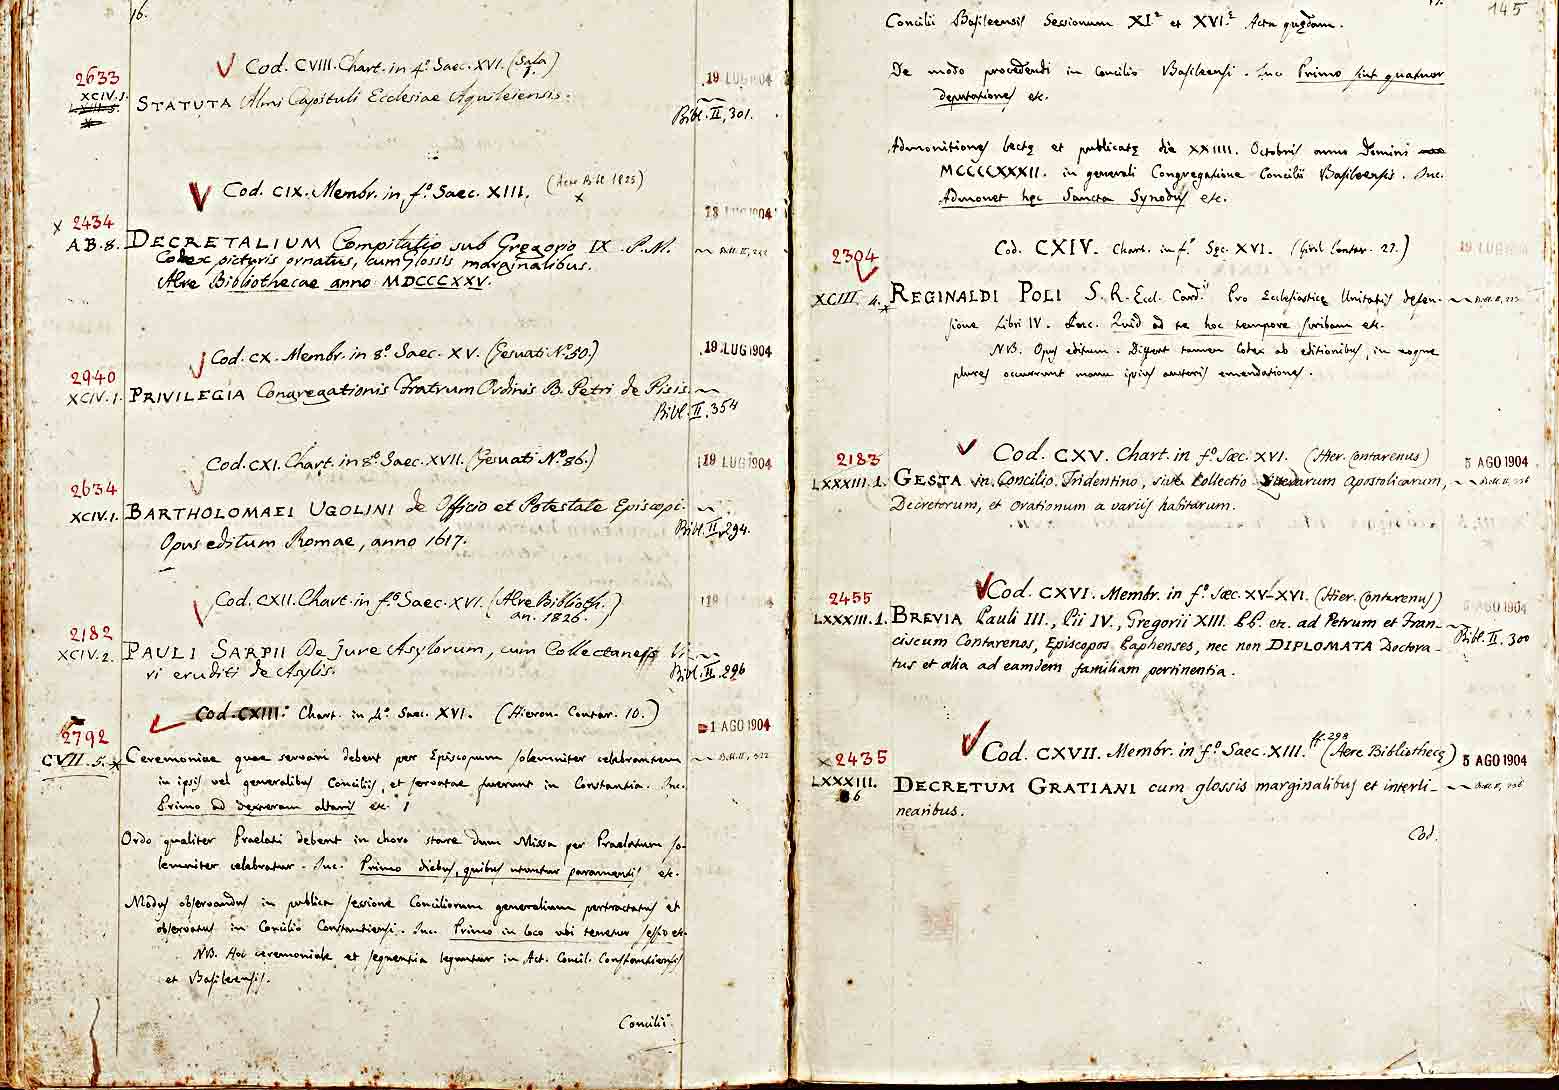 16.
Cod. CVIII. Chart. in 4.º Saec. XVI. (Sala
1.)
2633
19 LUG 1904
XCIV. 5.
STATUTA Almi Capituli Ecclesiae Aquileiensis.
Bibl. II, 301.
Cod. CIX. Membr. in f.º Saec. XIII. (Aere Bibl. 1825)
x
x 2434
18 LUG 1904
A.B. 8. DECRETALIUM Compilatio sub Gregorio IX. P. M.
Codex picturis ornatus, cum Glossis marginalibus.
Aere Bibliothecae anno MDCCCXXV.
Cod. CX. Membr. in 8.º Saec. XV. (Gesuati Nº. 50.)
19 LUG 1904
2940
XCIV. 1. PRIVILEGIA Congregationis Fratrum Ordinis B. Petri de Pisis.
Bibl. II. 354
Cod. CXI. Chart. in 8.º Saec. XVII. (Gesuati Nº. 86.)
19 LUG 1904
2634
XCIV. 1. BARTHOLOMAEI UGOLINI de Officio et Potestate Episcopi.
Bibl. II. 294.
Opus editum Romae, anno 1617.
Cod. CXII. Chart. in f.º Saec. XVI. (Aere Biblioth.
an. 1826.)
19
2182
XCIV. 2. PAULI SARPII De Jure Asylorum, cum Collectaneis Vi-
ri eruditi de Asylis.
Bibl. II. 296
Cod. CXIII. Chart. in 4.º Saec. XVI. (Hieron. Contar. 10.)
1 AGO 1904
2792
CVII. 5. x Ceremoniae quae servari debent per Episcopum solemniter celebrantem
in ipsis vel generalibus Conciliis, et servatae fuerunt in Constantia. Inc.
Primo ad dexteram altaris etc.
Ordo qualiter Praelati debent in choro stare dum Missa per Praelatum so-
lemniter celebratur. Inc. Primo diebus, quibus utuntur paramentis etc.
Modus observandus in publica sessione Conciliorum generalium pertractatus et
observatus in Concilio Constantiensi. Inc. Primo in loco ubi tenetur sessio etc.
NB. Hoc ceremoniale et sequentia leguntur in Act. Concil. Constantiensis
et Basileensis.
Concilii
145
Concilii Basileensis Sessionum XIª et XVIª Acta quędam.
De modo procedendi in Concilio Basileensi. Inc. Primo sint quatuor
deputationes etc.
Admonitiones lectę et publicatę die XXIIII. Octobris anno Domini
MCCCCXXXII. in generali Congregatione Concilii Basileensis. Inc.
Admonet hęc Sancta Synodus etc.
Cod. CXIV. Chart. in f.º Sęc. XVI. (Girol. Contar. 27.)
2304
XCIII. 4. x REGINALDI POLI S. R. Eccl. Card. Pro Ecclesiasticę Unitatis defen-
sione Libri IV. Inc. Quid ad te hoc tempore scribam etc.
NB. Opus editum. Differt tamen Codex ab editionibus, in eoque
plures occurrunt manu ipsius auctoris emendationes.
Cod. CXV. Chart. in f.º Sæc. XVI. (Hier. Contarenus)
2183
5 AGO 1904
LXXXIII. 1. GESTA in Concilio Tridentino, sive Collectio Litterarum Apostolicarum,
Decretorum, et Orationum a variis habitarum.
Cod. CXVI. Membr. in f.º Sæc. XV-XVI. (Hier. Contarenus)
2455
5 AGO 1904
LXXXIII. 1. BREVIA Pauli III., Pii IV., Gregorii XIII. PP. etc. ad Petrum et Fran-
ciscum Contarenos, Episcopos Paphenses, nec non DIPLOMATA Doctora-
Bibl. II. 300
tus et alia ad eamdem familiam pertinentia.
ff. 298
Cod. CXVII. Membr. in f.º Saec. XIII. (Aere Bibliothecę)
x 2435
5 AGO 1904
LXXXIII.
6
DECRETUM GRATIANI cum glossis marginalibus et interli-
nearibus.
Cod.